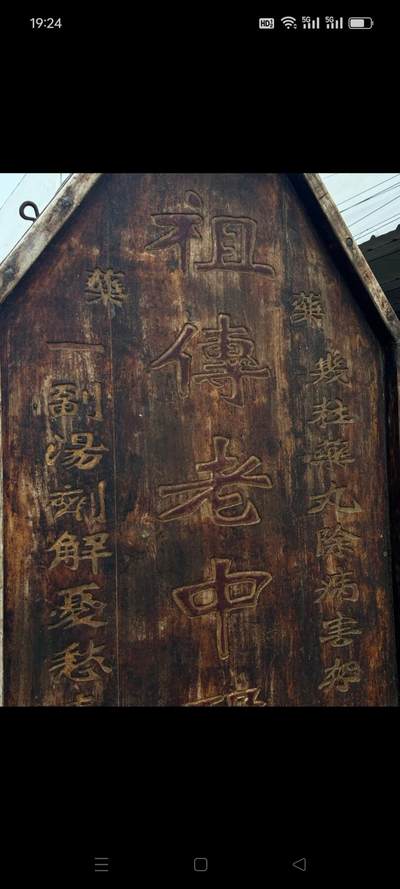 19:24
藥
幾粒藥丸除病害
祖傳老中
藥
一副湯劑解憂愁